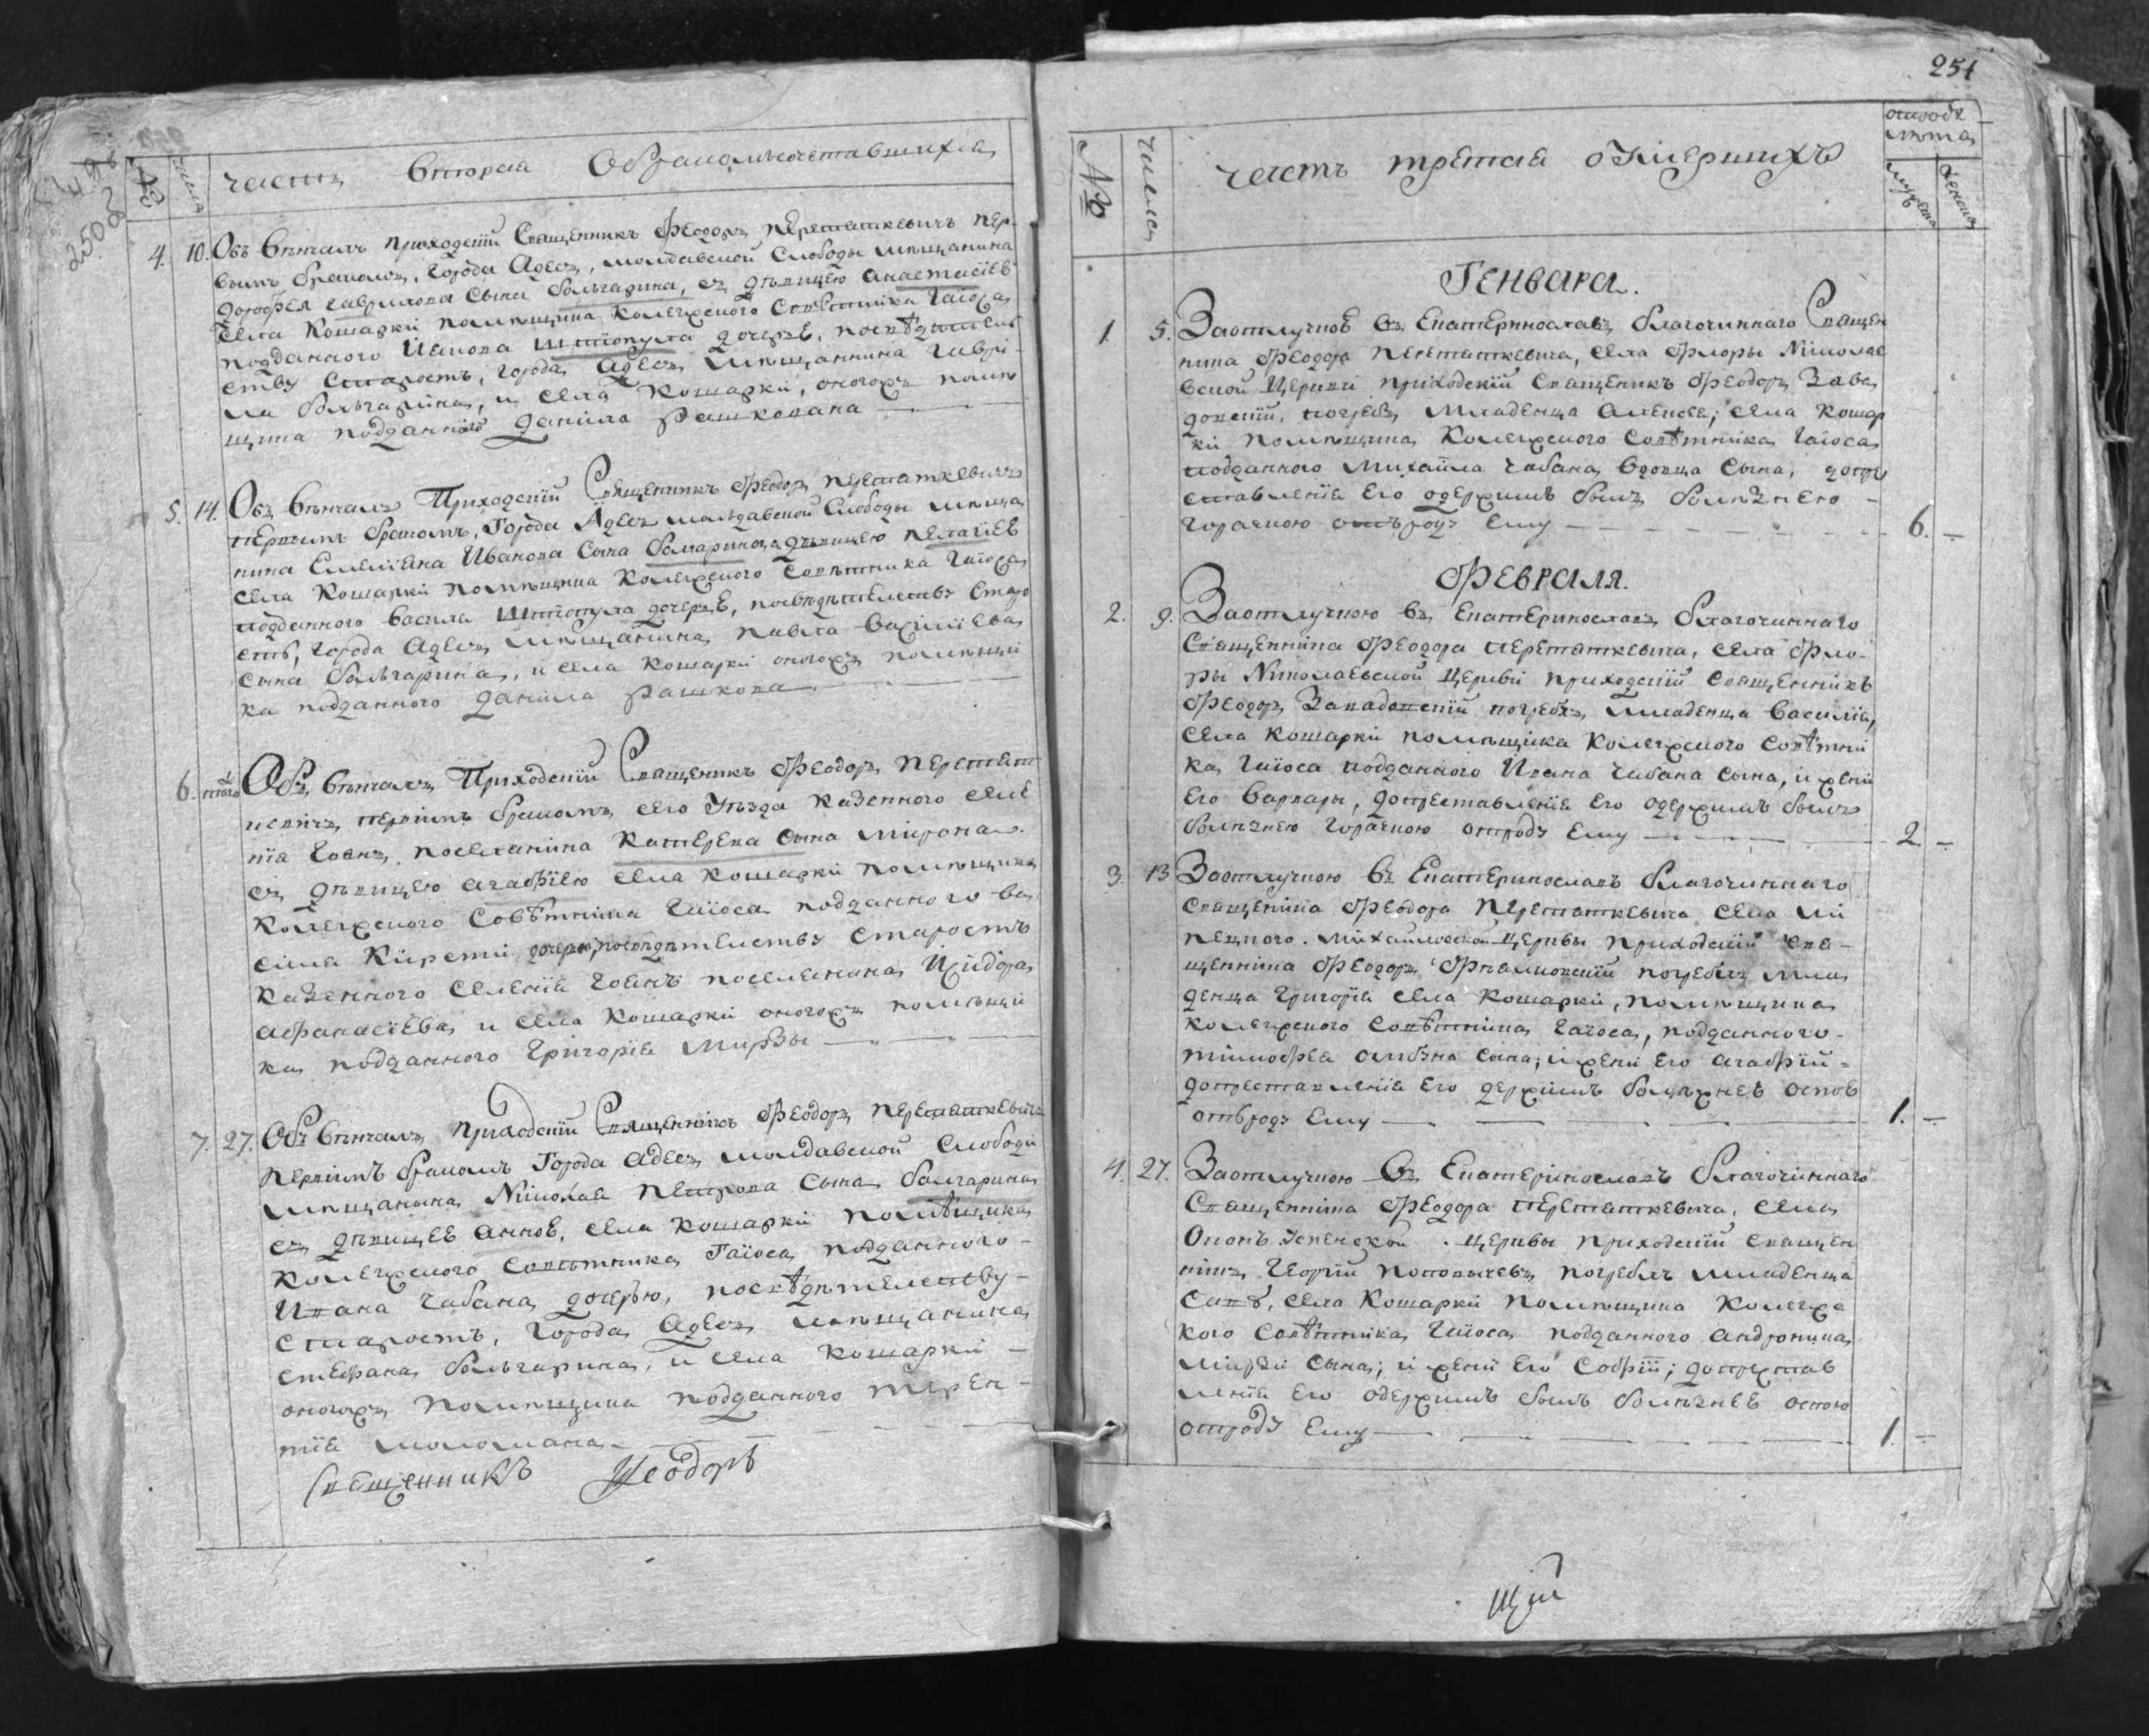 250 об
№
числа
часть вторая О бракомъсочетавшихся
4. 10. Объ венчалъ приходскїй Священникъ Феодоръ Переташкевичъ пер-
вымъ бракомъ, города Адесъ, молдавской Слободы мѣщанина
дорофея гаврилова сына болъгарина, съ дѣвицею анастасїеѣ
села Кошаркѝ помѣщика колежского Совѣтника Гаїоса
подданного Иакова Штїопула дочерѣ, посвѣдителъ
ству старостъ, города Адесъ мѣщаннина гаврї-
ла болъгарїна, и села Кошаркѝ, оногожъ помѣ
щика подданного данїила рашкована
5. 14. Объ венчалъ Приходскїй Священникъ Феодоръ Переташкевичъ
первымъ бракомъ, Города Адесъ молъдавской Слободы мѣща
нина Емелїена Иванова сына болгарина, съ дѣвицею пелагїеѣ
села Кошаркѝ помѣщика Колежского Совѣтника Гаїоса
подданного васила Штїопула дочерѣ, посвѣдителству старо
стъ, города Адесъ мѣщанина павла василїева
сына болъгарина, и села кошаркѝ оногожъ помѣщи
ка подданного данїила рашкова
6. того Объ венчалъ Приходскїй Священикъ Феодоръ Переташ
кевичъ первїмъ бракомъ, сего уѣзда казенного селе
нїа Гоянъ поселанїна Катерена сына мирона
съ дѣвицею агафїею села кошаркѝ помѣщика
колежского Совѣтника Гаїоса подданного ва
сила Кирети дочерю, посвидѣтелству старостъ
казенного селенїа гоянъ поселанина Исидора
афанасїева и села кошаркѝ оногожъ помѣщи
ка подданного григорїа мирзы
7. 27. Объ венчалъ приходскїй Священнїкъ Феодоръ Переташкевичъ
первїмъ бракомъ Города Адесъ молдавской слободы
мѣщанына Николая Петрова сына болгарина
съ дѣвицеѣ анноѣ, села кошаркѝ помѣщика
колежского совѣтника Гаїоса подданного
Ивана чабана дочерью, посвѣдѣтелству
старостъ, города Адесъ мѣщанина
стефана болъгарина, и села кошаркѝ
оногожъ помѣщика подданного терен-
тїя моломана
Священникъ Феодоръ
251
№
числа
часть третая о Умершихъ
отроду
лѣта
мужеска
женска
Генвара.
1. 5. Заотлучкоѣ въ Екатеринославъ благочинного Священ
ника Феодора Переташкевича, села Флоры Николае
вской Церкви приходскїй Священикъ Феодоръ Зава
довскїй, погребъ младенца алексеа, села кошар
ки помѣщика колежского совѣтника гаїоса
подданного михайла чабана вдовца сына, допре
ставленїа его одержимъ былъ болѣзнею
горачкою отъроду ему 6. —
Февраля.
2. 9. Заотлучкою въ Екатеринославъ благочинного
Священнїка Феодора переташкевича, села фло-
ры Николаевской Церкви приходскїй священнїкъ
Феодоръ Завадовскїй погребъ младенца василїа,
села кошаркѝ помѣщика колежского совѣтни
ка гаїоса подданного Ивана чабана сына, и жени
его варвары, допреставленїа его одержимъ былъ
болѣзнею горачкою отроду ему 2 —
3. 13 Заотлучкою въ Екатеринославъ благочинного
священїка Феодора Переташкевича села
михайловской церквы приходскїй свя-
щеннїка Феодоръ погребъ мла
денца григорїа села кошаркѝ, помѣщика
колежского совѣтнїка гаїоса, подданного
тимофеа сына, и жени его агафїй
допреставленїа его держимъ болѣзнеѣ оспоѣ
отъроду ему 1. —
4. 27. Заотлучкою въ Екатерїнославъ благочїнного
Священнїка Феодора переташкевича, села
Оконъ Успенской церквы приходскїй священ
нїкъ Георгїй поповичевъ погребъ младенца
савѣ, села Кошаркѝ помѣщика колежс
кого совѣтника гаїоса подданного андроника
мирзи сына; и жени его софїї; допрестав
ленїа его одержимъ былъ болѣзнеѣ оспою
отроду ему 1. —
щїй